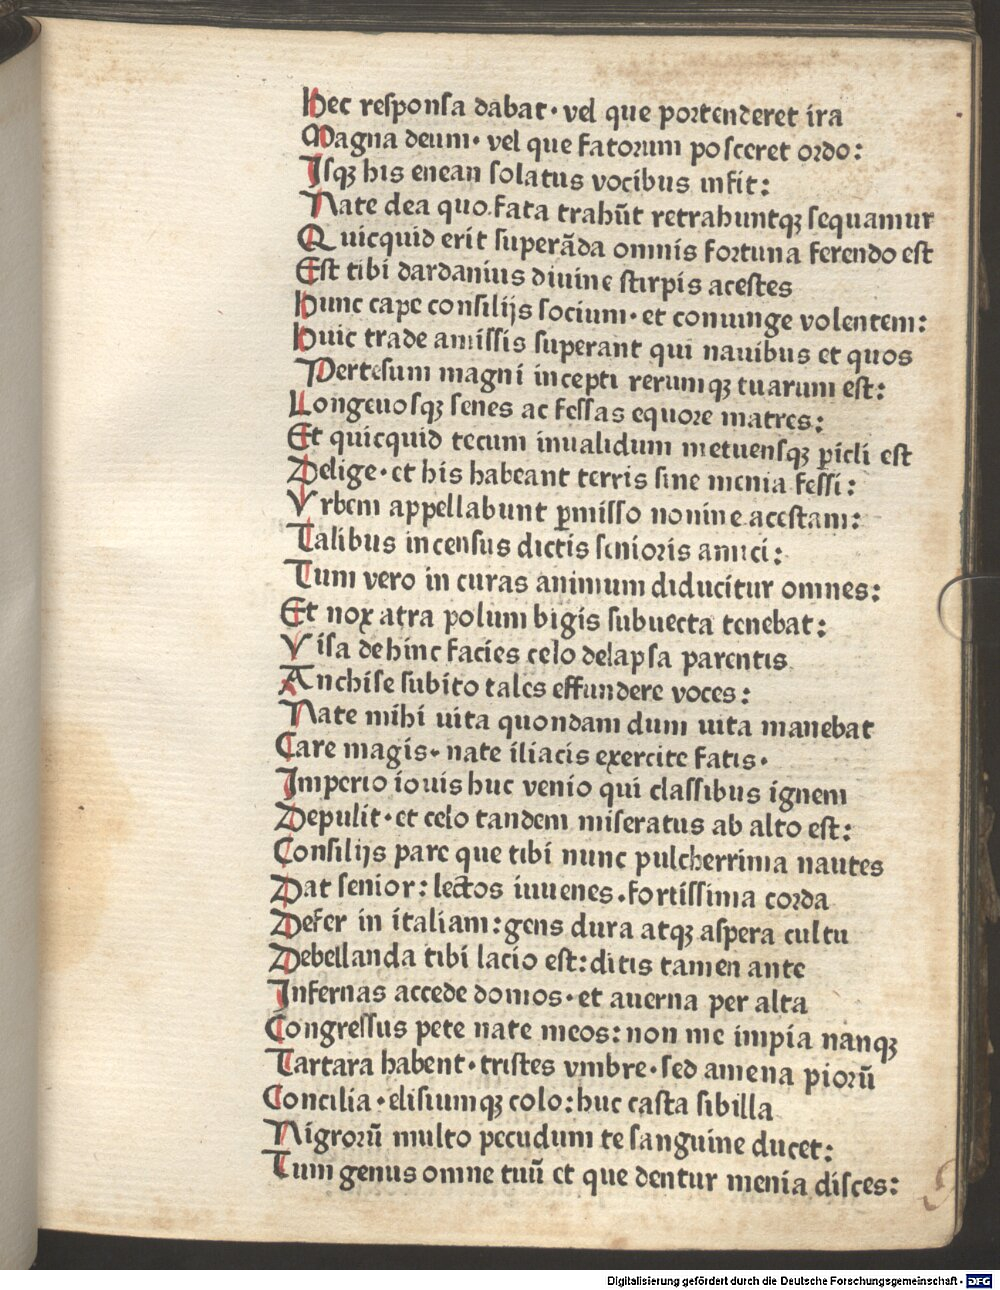 Hec responsa dabat· vel que portenderet ira
Magna deum· vel que fatorum posceret ordo:
Isqꝫ his enean solatus vocibus infit:
Nate dea quo.fata trahūt retrahuntqꝫ sequamur
Quicquid erit superāda omnis fortuna ferendo est
Est tibi dardanius diuine stirpis acestes
Hunc cape consilijs socium· et coniunge volentem:
Huic trade amissis superant qui nauibus et quos
Pertesum magni incepti rerumqꝫ tuarum est:
Longeuosqꝫ senes ac fessas equore matres:
Et quicquid tecum inualidum metuensqꝫ ꝑicli est
Delige· et his habeant terris sine menia fessi:
Vrbem appellabunt ꝑmisso nonine acestam:
Talibus incensus dictis senioris amici:
Tum vero in curas animum diducitur omnes:
Et nox atra polum bigis subuecta tenebat:
Visa dehinc facies celo delapsa parentis
Anchise subito tales effundere voces:
Nate mihi uita quondam dum uita manebat
Care magis· nate iliacis exercite fatis·
Imperio iouis huc venio qui classibus ignem
Depulit· et celo tandem miseratus ab alto est:
Consilijs pare que tibi nunc pulcherrima nautes
Dat senior: lectos iuuenes.fortissima corda
Defer in italiam: gens dura atqꝫ aspera cultu
Debellanda tibi lacio est: ditis tamen ante
Infernas accede domos· et auerna per alta
Congressus pete nate meos: non me impia nanqꝫ
Tartara habent· tristes vmbre· sed amena piorū
Concilia· elisiumqꝫ colo: huc casta sibilla
Nigrorū multo pecudum te sanguine ducet:
Tum genus omne tuū et que dentur menia disces:
Digitalisierung gefördert durch die Deutsche Forschungsgemeinschaft - DFG